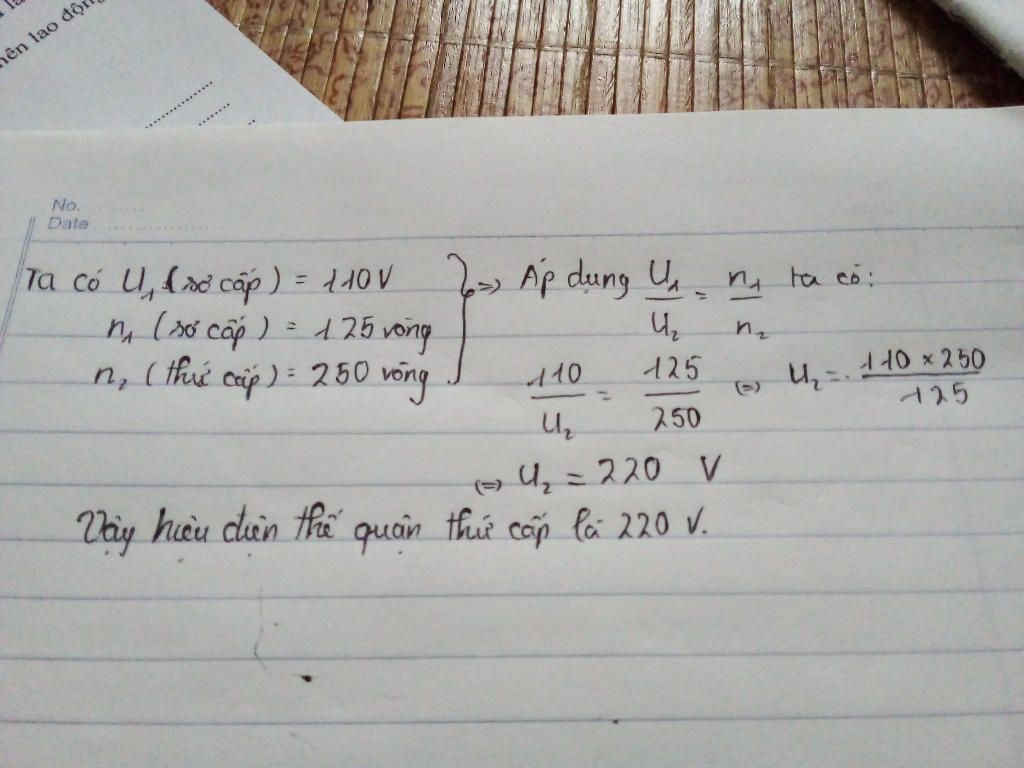 nên lao động
No.
Date
Ta có U₁ (sơ cấp) = 110V
n₁ (sơ cấp) = 125 vòng
n₂ (thứ cấp) = 250 vòng
=> Áp dụng U₁/U₂ = n₁/n₂ ta có:
110/U₂ = 125/250 <=> U₂ = 110 × 250/125
<=> U₂ = 220 V
Vậy hiệu điện thế quận thứ cấp là 220 V.